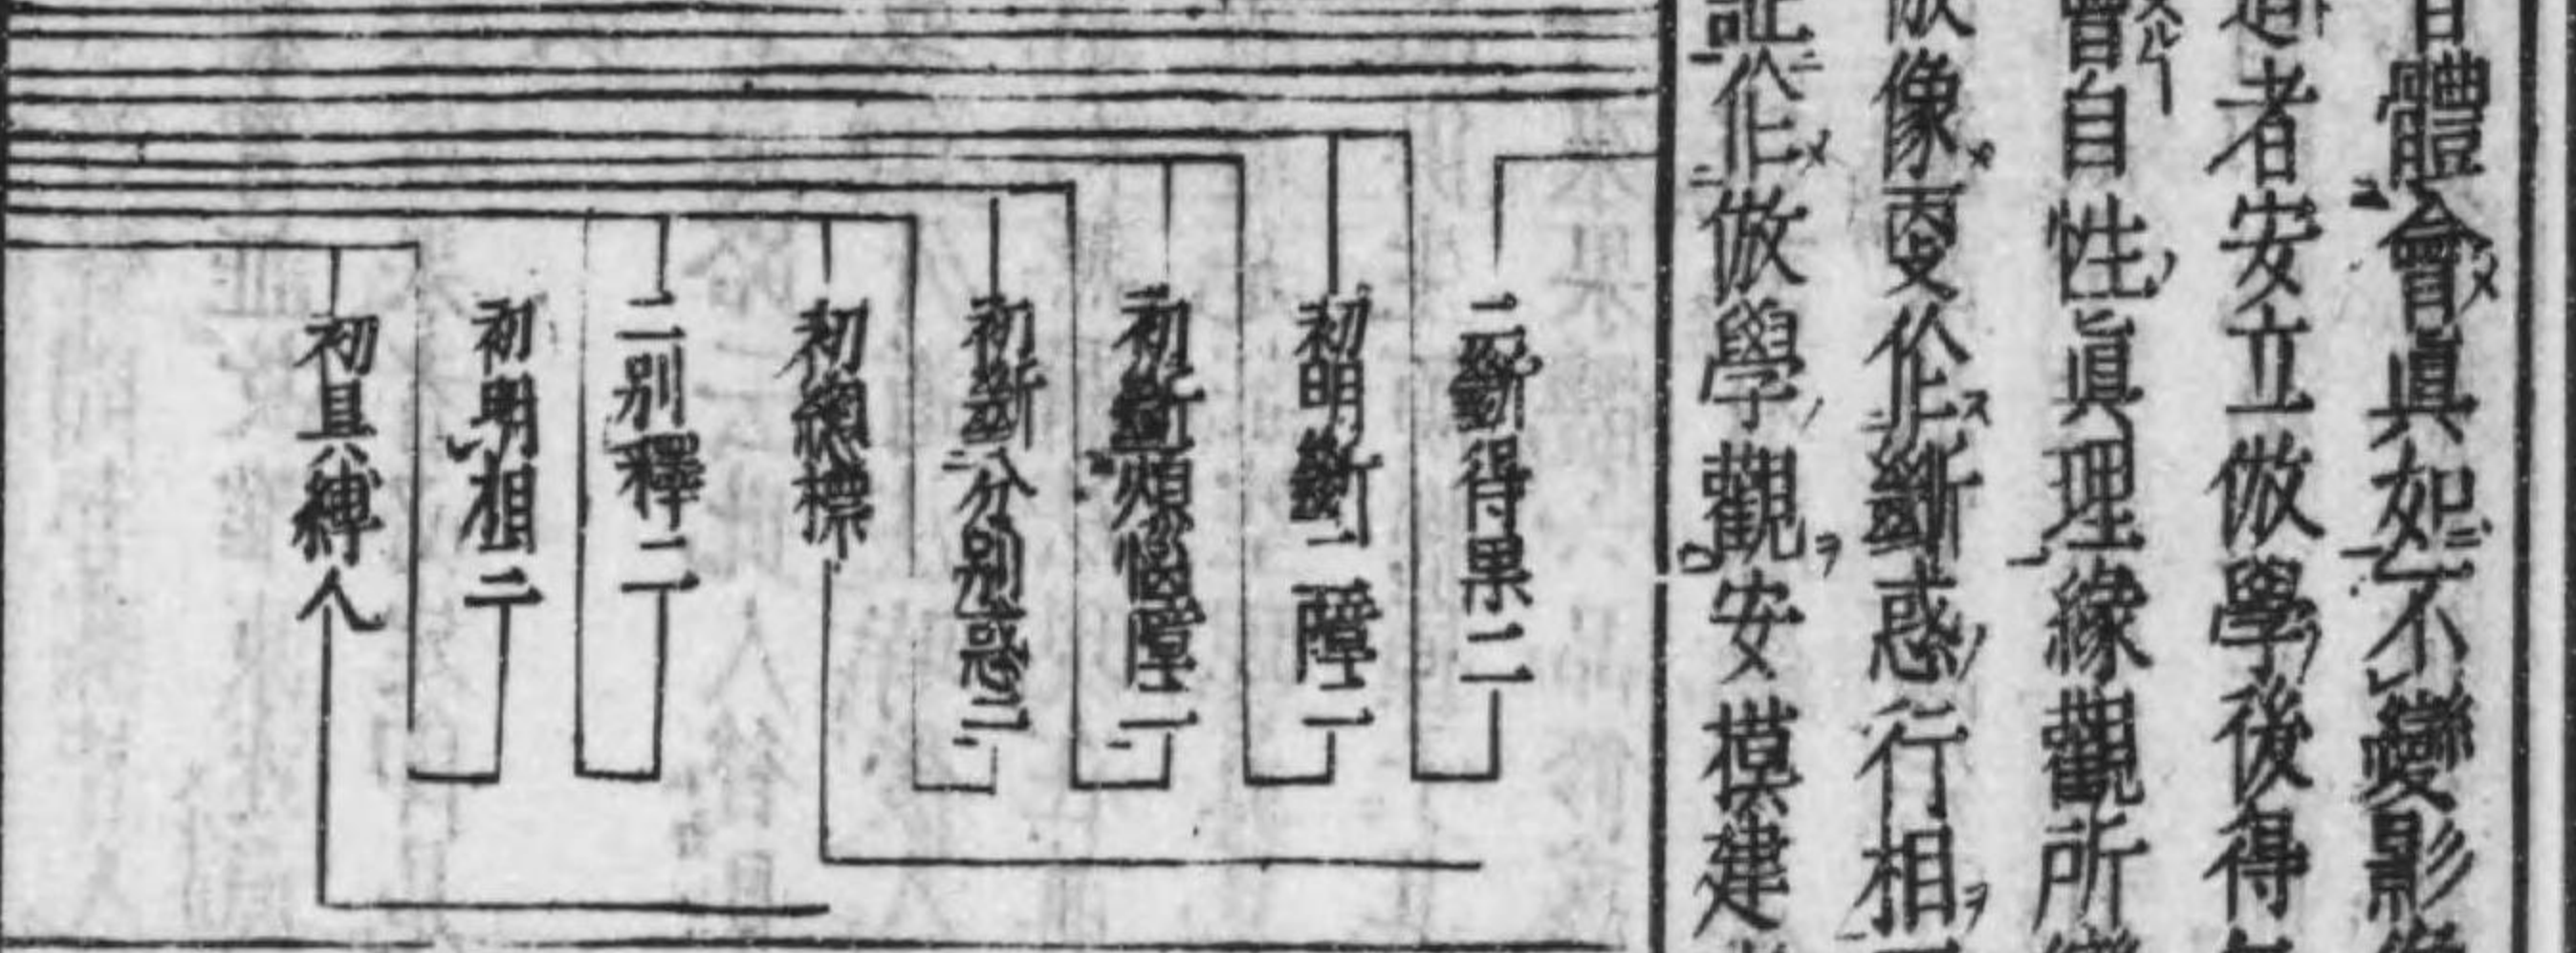 體會眞如不變影
者安立倣學後得
自性眞理緣觀所
像叓作斷惑行相
作倣學觀安摸建
二斷得果二
初明斷二障二
初斷煩惱障二
初斷分別惑二
初總標
二別釋二
初明相二
初具縛人